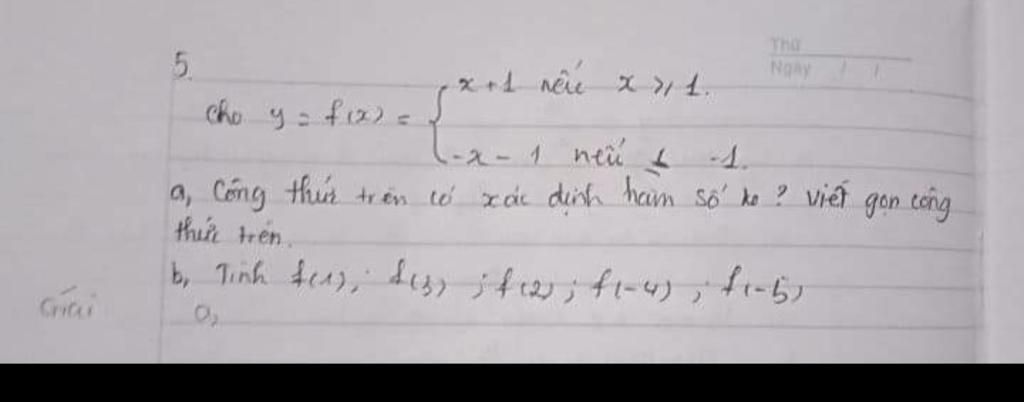 Thứ
Ngày / /
5.
Cho y = f(x) = { x + 1 nếu x ≥ 1.
-x - 1 nếu ≤ -1.
a, Công thức trên có xác định hàm số ko? viết gọn công
thức trên.
b, Tính f(1); f(3); f(2); f(-4); f(-5)
Giải
a,